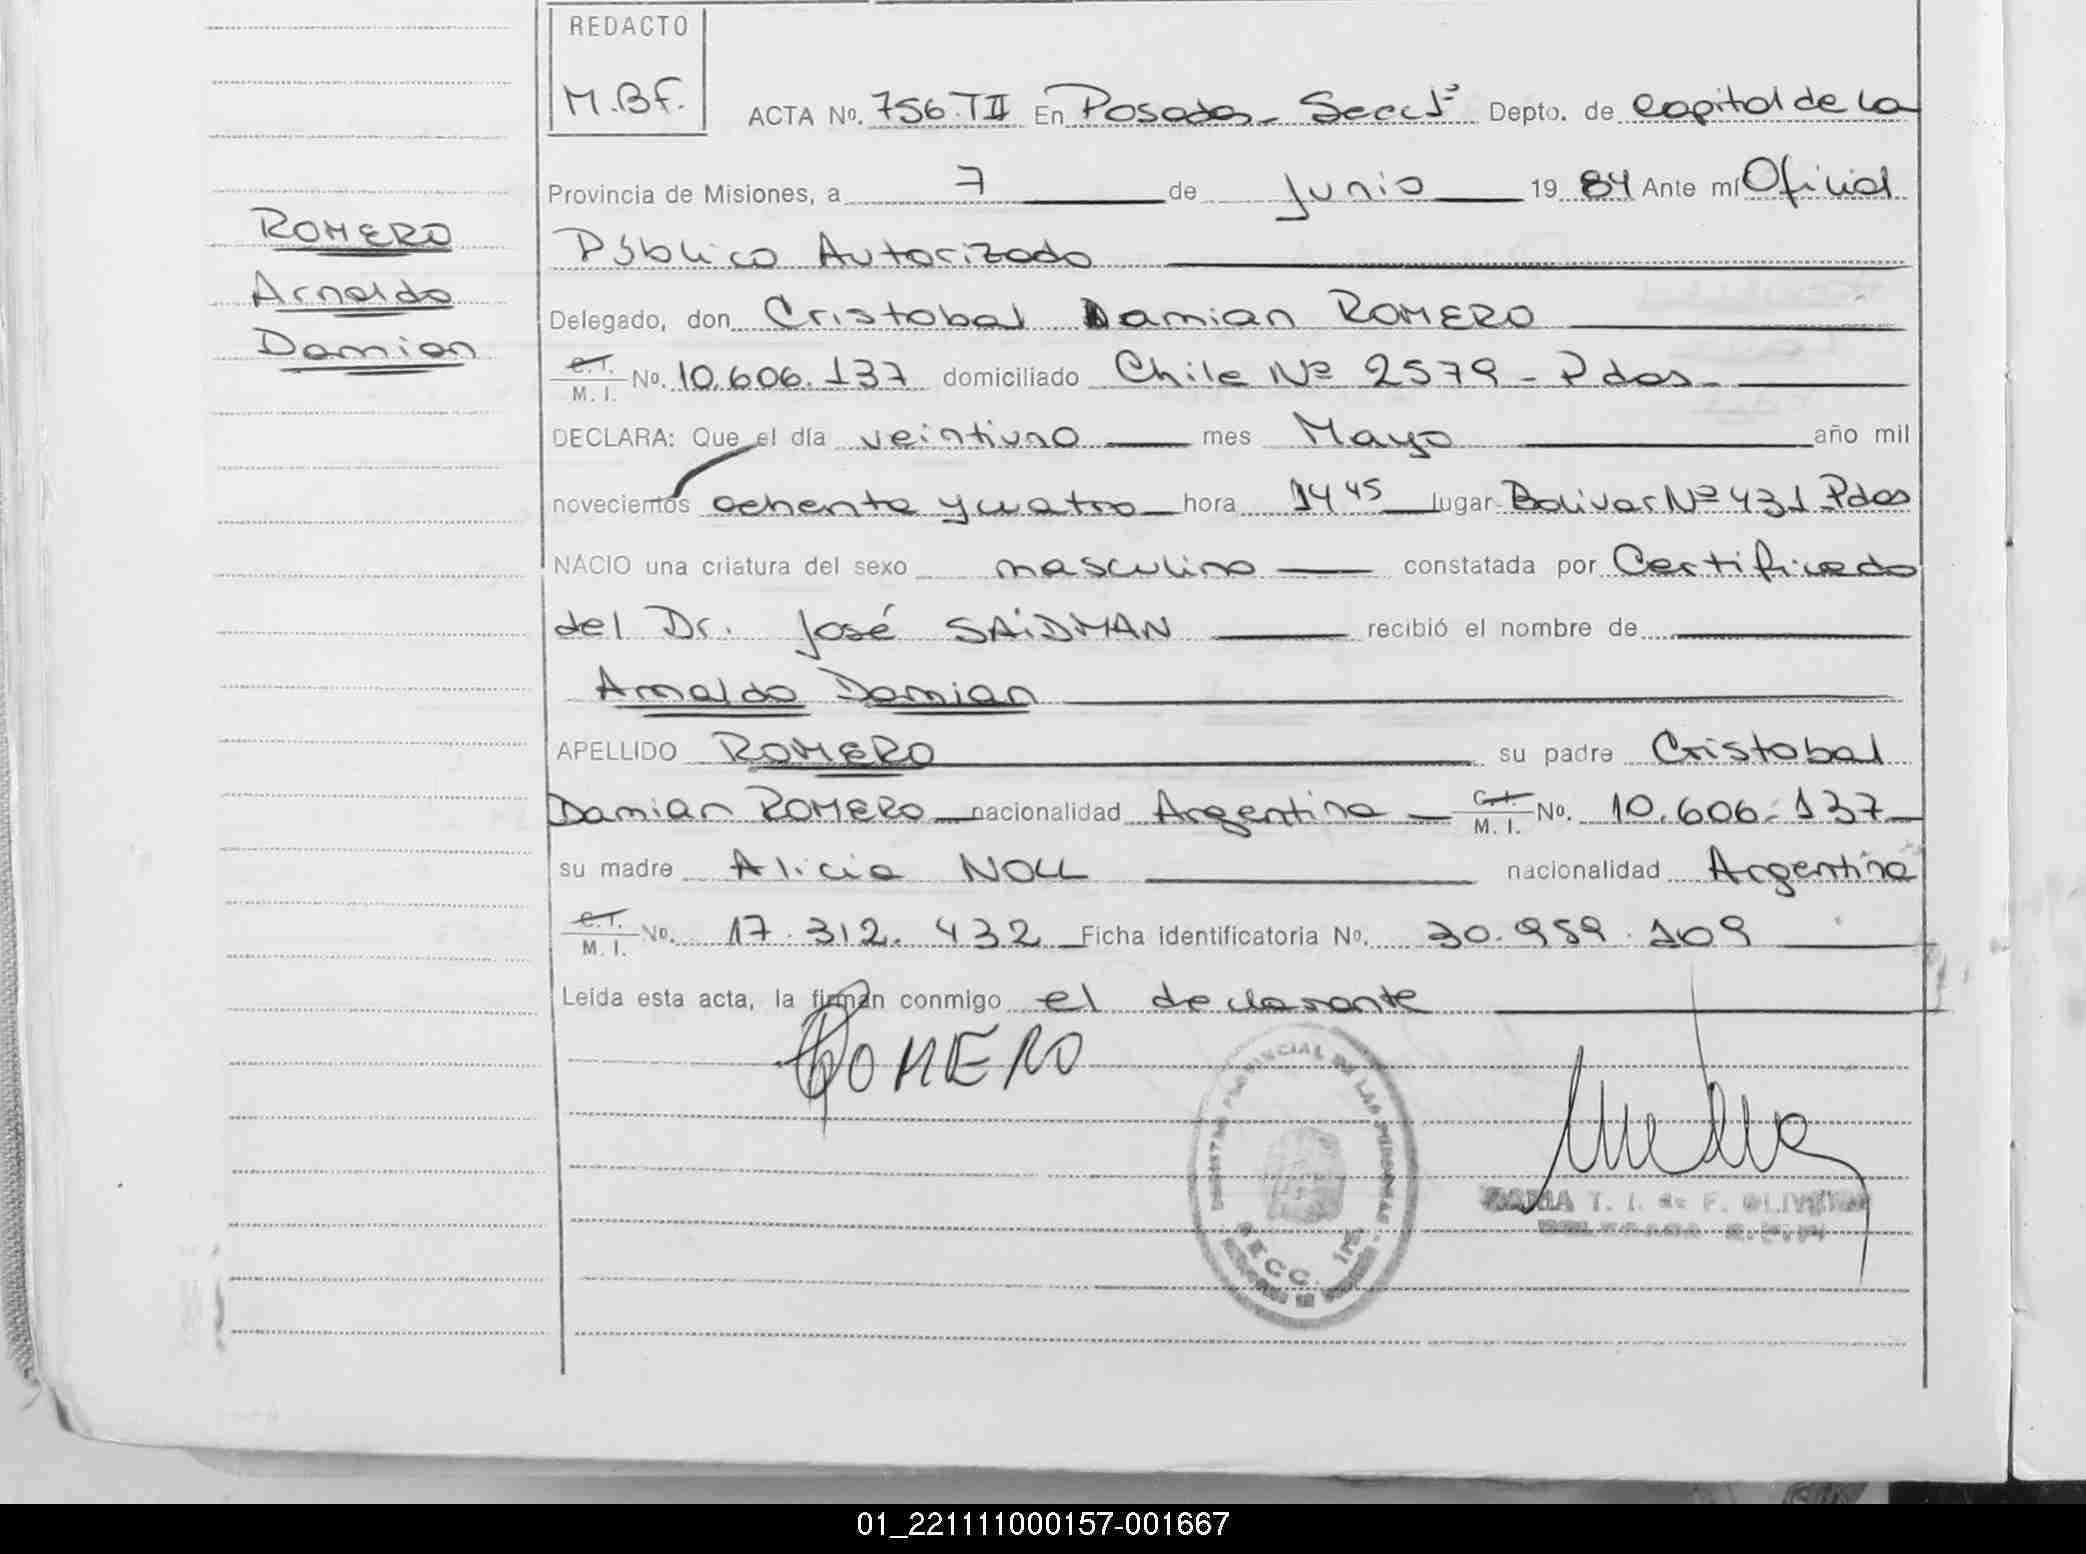 REDACTO
M.B.F.
ACTA No. 756.TII En Posadas - Secc 1ª Depto. de Capital de la
Provincia de Misiones, a 7 de Junio 19 84 Ante mí Oficial
Público Autorizado
ROMERO
Arnaldo
Damian
Delegado, don Cristobal Damian ROMERO
C.I.
M. I. No. 10.606.137 domiciliado Chile Nº 2579 - Pdas -
DECLARA: Que el día veintiuno mes Mayo año mil
novecientos ochenta y cuatro hora 14 45 lugar Bolivar Nº 431 Pdas
NACIO una criatura del sexo masculino constatada por Certificado
del Dr. José SAiDMAN recibió el nombre de
Arnaldo Damian
APELLIDO ROMERO su padre Cristobal
Damian ROMERO nacionalidad Argentina C.I.
M. I. No. 10.606.137
su madre Alicia NOLL nacionalidad Argentina
C.I.
M. I. No. 17.312.432 Ficha identificatoria No. 30.959.109
Leída esta acta, la firman conmigo el declarante
ROMERO
PROVINCIAL DE LAS PERSONAS
SECC. 1ra.
MARIA T. I. de F. OLIVEIRA
DELEGADA R.P.P.
01_221111000157-001667